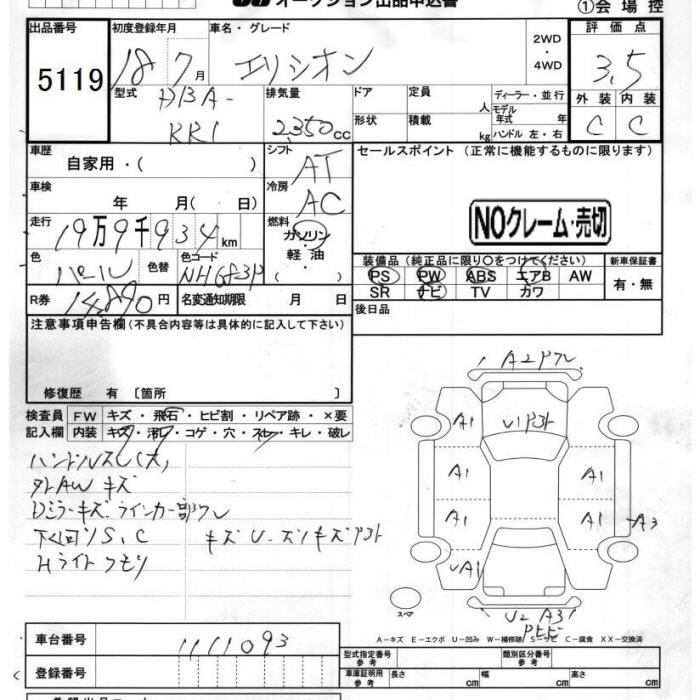 オークション出品申込書
①会場控
出品番号
5119
初度登録年月
18 7月
車名・グレード
エリシオン
2WD
・
4WD
評価点
3.5
外装 内装
C C
型式
DBA-
RR1
排気量
2,350cc
ドア
形状
定員 人
積載 kg
ディーラー・並行
モデル
年式 年
ハンドル 左・右
車歴
自家用・( )
シフト
AT
車検
年 月( 日)
冷房
AC
走行
19万9千934km
燃料
ガソリン
・
軽油
( )
色
パール
色替
色コード
NH683P
R券
14,890円
名変通知期限 月 日
セールスポイント (正常に機能するものに限ります)
NOクレーム・売切
装備品(純正品に限り○をつけてください)
PS PW ABS エアB AW
SR ナビ TV カワ
新車保証書
有・無
後日品
注意事項申告欄(不具合内容等は具体的に記入して下さい)
修復歴 有〔箇所 〕
検査員
記入欄
FW キズ・飛石・ヒビ割・リペア跡・×要
内装 キズ・汚レ・コゲ・穴・スレ・キレ・破レ
ハンドルスレ(大)
外AW キズ
Dミラーキズ ウインカー部ワレ
下回リS,C
Hライトクモリ
A2ワレ
A1
A1
A1
A1
A1
A1
A3
U2 A3
スペア
A-キズ E-エクボ U-凹み W-補修跡 S-サビ C-腐食 XX-交換済
車台番号
1111093
登録番号
型式指定番号
参考
類別区分番号
参考
車庫証明用
参考
長さ cm
幅 cm
高さ cm